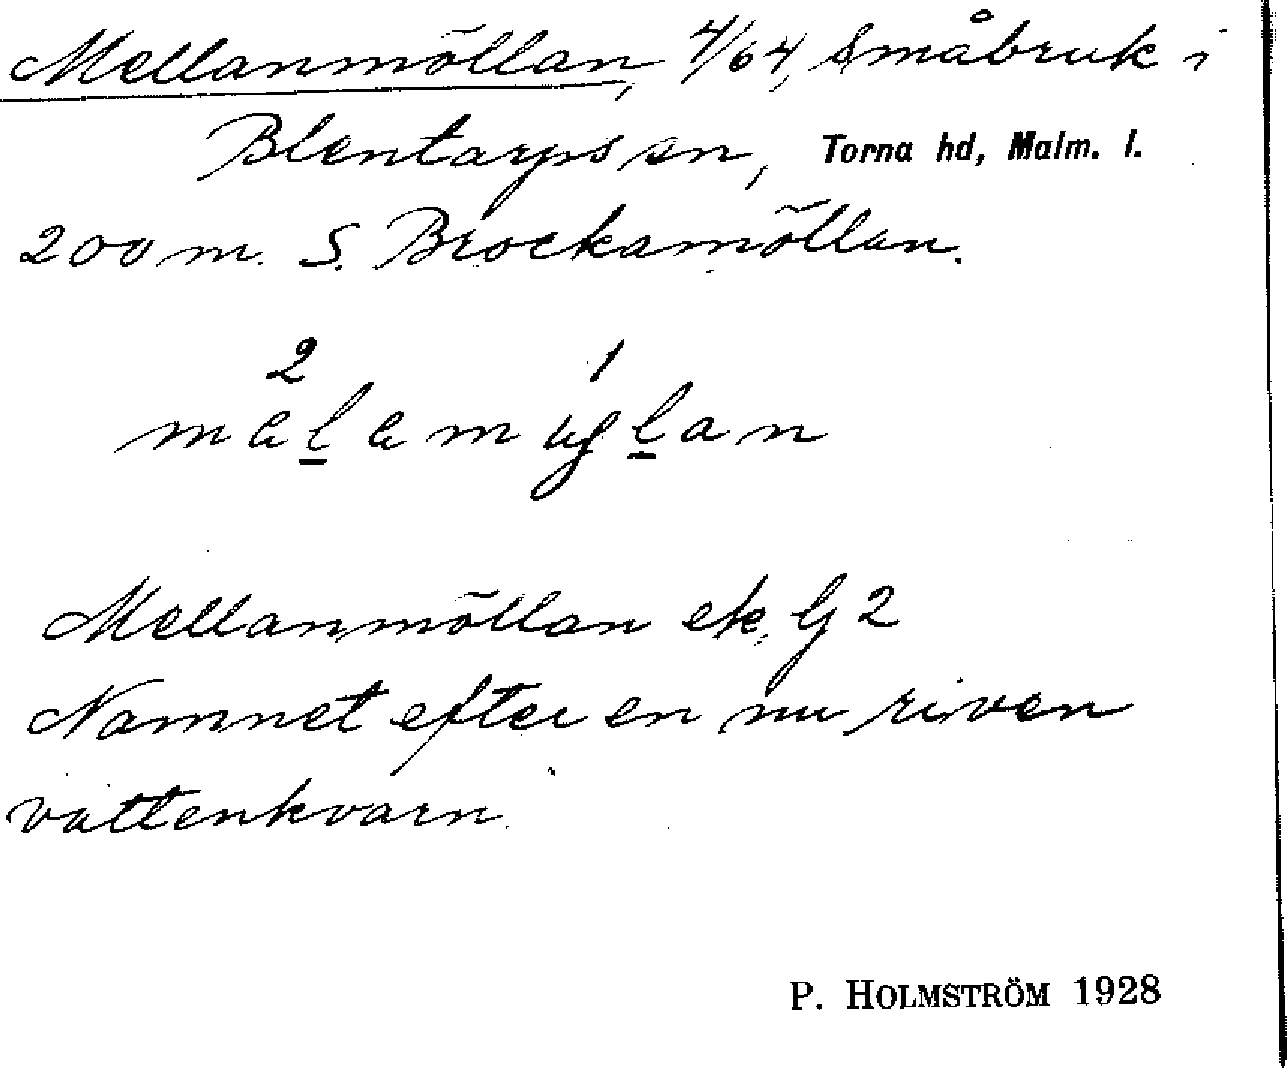 Mellanmöllan, 4/64, Småbruk i
Blentarps sn, Torna hd, Malm. l.
200 m. S. Brockamöllan.
2 1
Mellanmöllan ek. G 2
Namnet efter en nu riven
vattenkvarn.
P. HOLMSTRÖM 1928